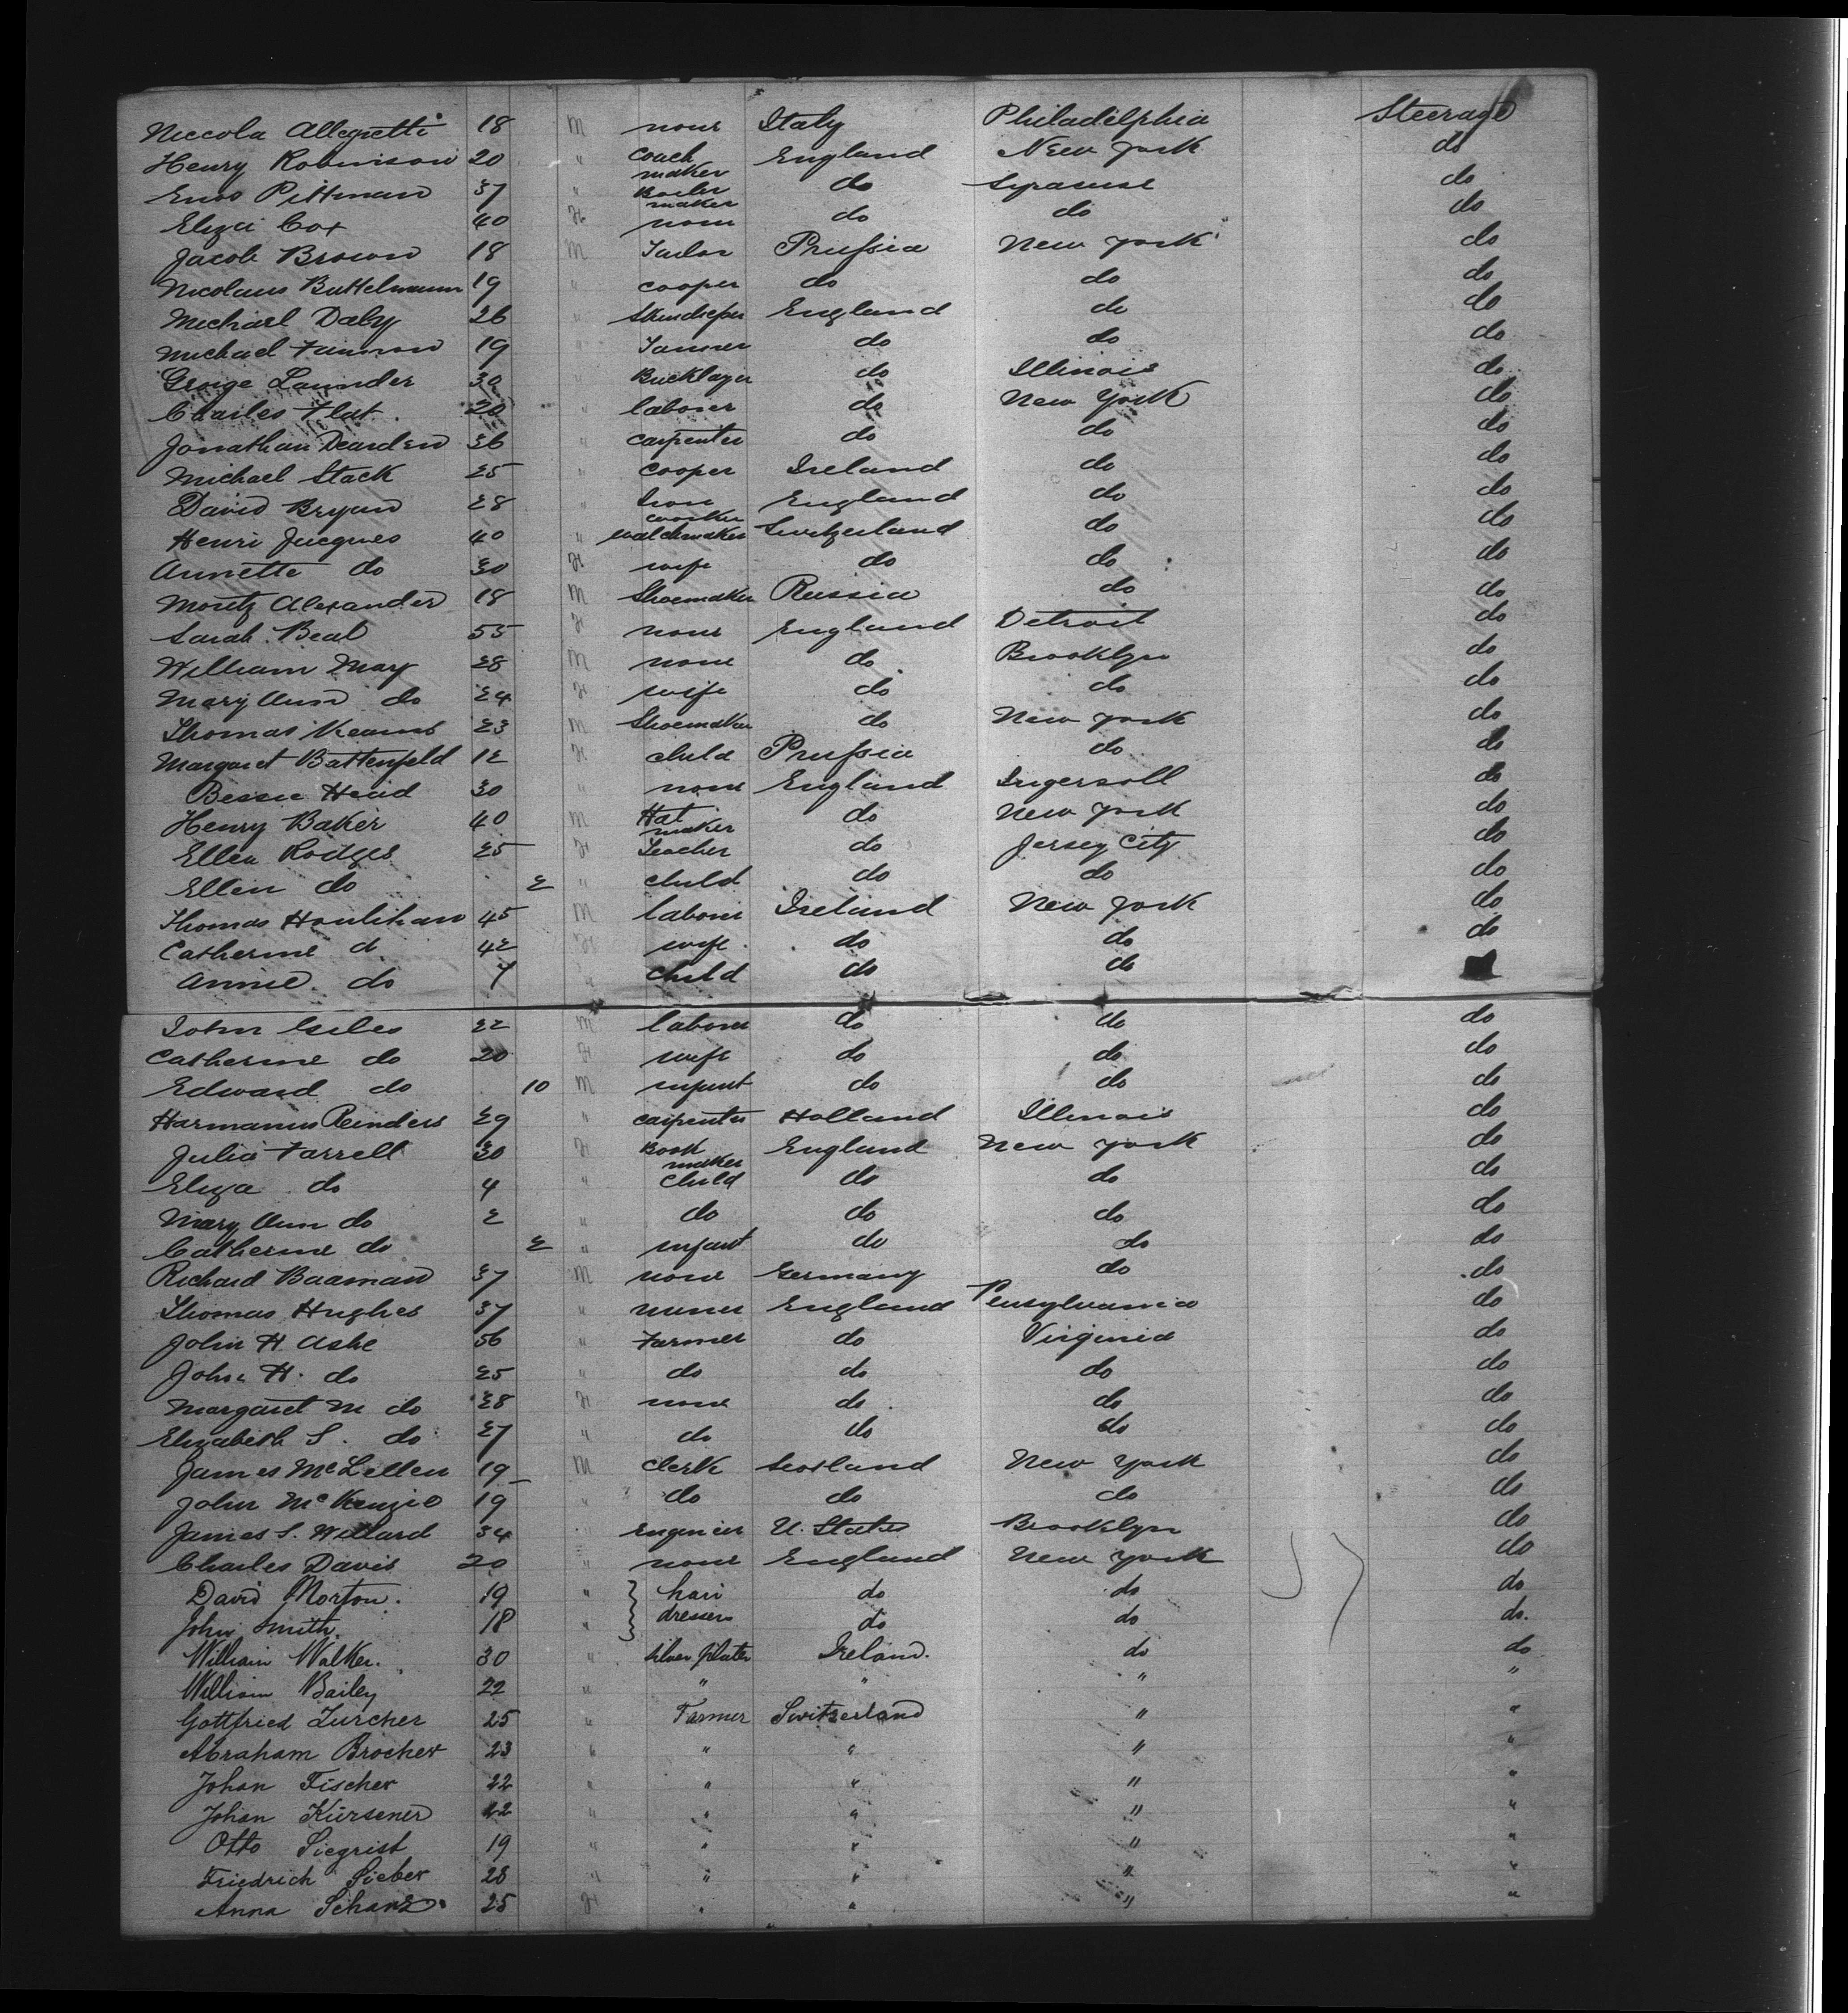 Niccola Allegretti 18 M none Italy Philadelphia Steerage
Henry Robinson 20 " Coach maker England New York do
Enos Pittman 37 " Boiler maker do Syracuse do
Eliza Cox 40 F none do do do
Jacob Brown 18 M Tailor Prussia New York do
Nicolaus Buttelmann 19 " cooper do do do
Michael Daly 26 " England do do
Michael 19 " Tanner do do do
George Launder 30 " Bricklayer do Illinois do
Charles Flat 20 " laborer do New York do
Jonathan Dearden 26 " carpenter do do do
Michael Stack 25 " cooper Ireland do do
David Bryan 28 " Iron worker England do do
Henri Jacques 40 " watchmaker Switzerland do do
Annette do 30 F wife do do do
Moritz Alexander 18 M Shoemaker Russia do do
Sarah Beal 55 F none England Detroit do
William May 28 M none do Brooklyn do
Mary Ann do 24 F wife do do do
Thomas Kearns 23 M Shoemaker do New York do
Margaret Battenfeld 12 F child Prussia do do
Bessie Head 30 " none England Ingersoll do
Henry Baker 40 M Hat maker do New York do
Ellen Rodges 25 F Teacher do Jersey City do
Ellen do 2 " child do do do
Thomas Houlihan 45 M laborer Ireland New York do
Catherine d. 42 F wife do do do
Annie do 7 " child do do
John Giles 22 M laborer do do do
Catherine do 20 F wife do do do
Edward do 10 M infant do do do
Harmanus Reinders 29 " carpenter Holland Illinois do
Julia Farrell 30 F Book maker England New York do
Eliza do 4 " child do do do
Mary Ann do 2 " do do do do
Catherine do 2 " infant do do do
Richard Baaman 37 M none Germany do do
Thomas Hughes 37 " miner England Pensylvania do
John H Ashe 56 " Farmer do Virginia do
John H. do 25 " do do do do
Margaret M do 28 F none do do do
Elizabeth S. do 27 " do do do do
James McLellen 19 M Clerk Scotland New York do
John McKenzie 19 " do do do do
James S. Willard 34 " Engineer U. States Brooklyn do
Charles Davis 20 " none England New York do
David Morton. 19 " hair do do do
John Smith. 18 " dressers do do do.
William Walker. 30 " Silver plater Ireland. do do
William Bailey 22 " " " " "
Gottfried Zurcher 25 " Farmer Switzerland " "
Abraham Brocher 23 " " " " "
Johan Fischer 22 " " " " "
Johan Kürsener 22 " " " " "
Otto Siegrist 19 " " " " "
Friedrich Sieber 28 " " " " "
Anna Schanz 25 F " " " "